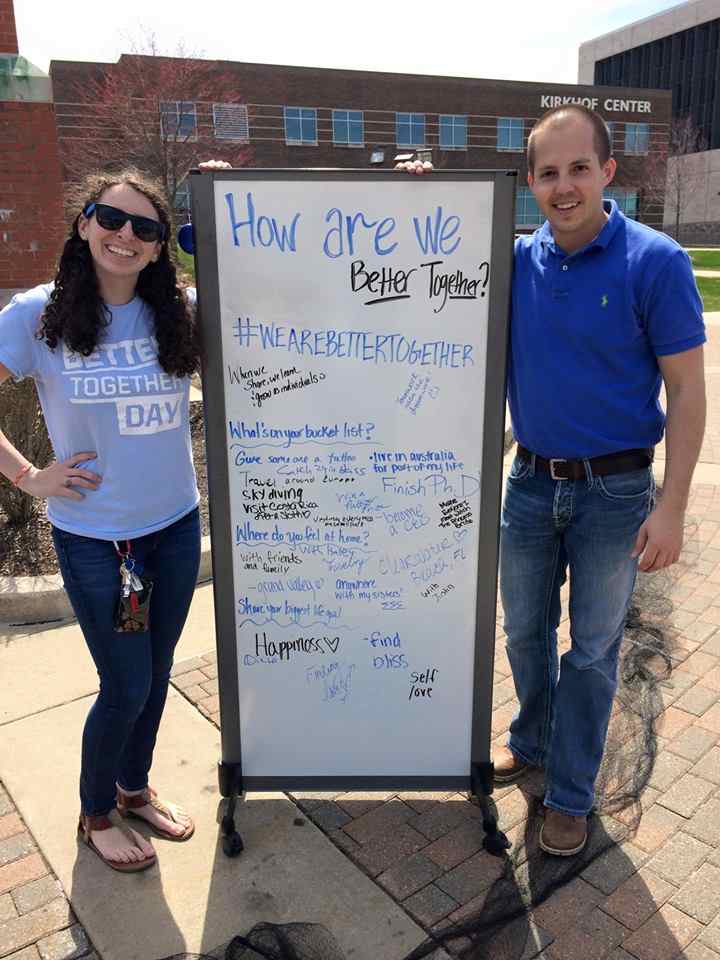 KIRKHOF CENTER
How are we
Better Together?
#WEAREBETTERTOGETHER
When we
share, we learn
& grow as individuals
BETTER
TOGETHER
DAY
What's on your bucket list?
Give someone a tattoo
Travel around Europe
Sky diving
Visit Costa Rica
• live in australia
for part of my life
Finish Ph.D
become a
Where do you feel at home?
with friends
and family
- grand valley
anywhere
with my sisters!
ΣΣΣ
Clearwater
Beach, FL
With
John
Share your biggest life goal
Happiness
- find
bliss
Finding
Self
love